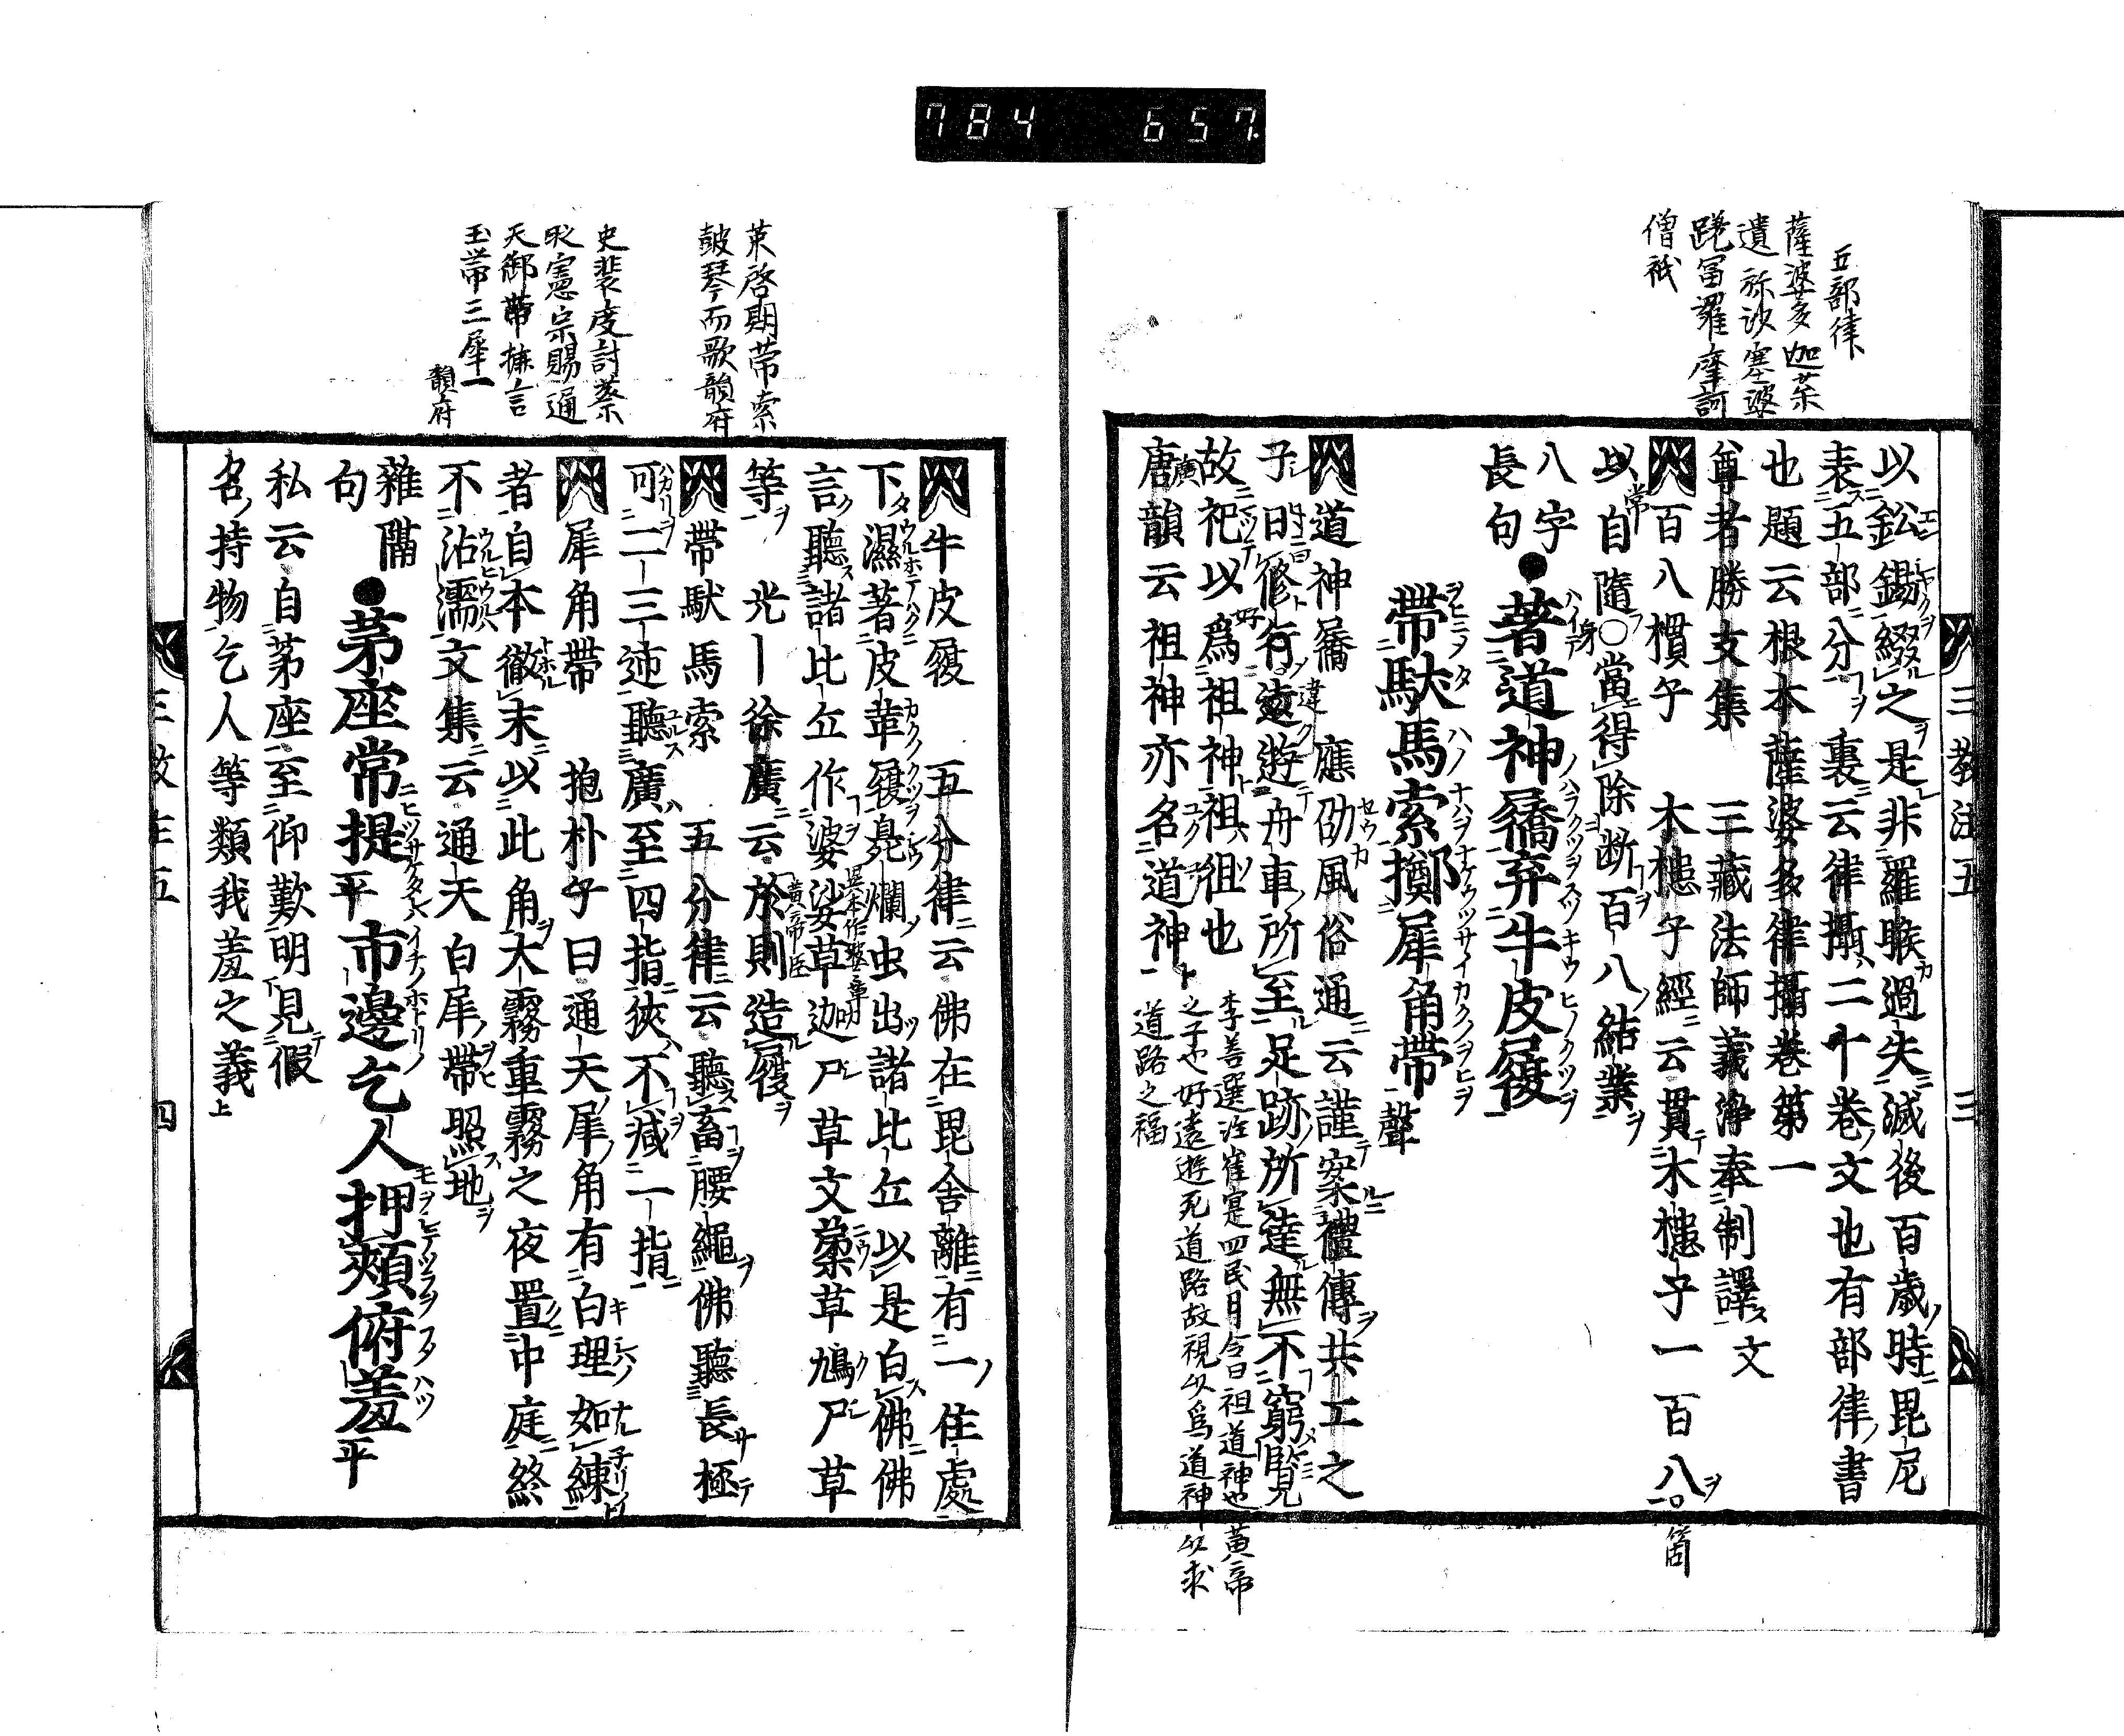 784 657
五部律
薩波多迦葉
遺弥沙塞婆
蹉冨羅摩訶
僧祇
三教法五 三
以鈆錫綴之是非羅睺過失滅後百歳時毘尼
表五部分裏云律攝二十巻文也有部律書
也題云根本薩婆多律攝巻第一
尊者勝支集 三藏法師義浄奉制譯文
百八槵子 木槵子經云貫木槵子一百八箇
以常自隨身當得除断百八結業
八字
長句
●著道神屩弃牛皮屐
帶馱馬索擲犀角帶聲
道神屩 應劭風俗通云謹案禮傳共工之
子曰修好遠遊舟車所至足跡所達無不窮覧
故祀以爲祖神祖徂也
唐韻云祖神亦名道神
李善選注崔寔四民月令曰祖道神也黄帝
之子也好遠遊死道路故視以爲道神以求
道路之福
牛皮屐 五分律云佛在毘舎離有一住處
下濕著皮韋屐臰爛虫出諸比丘以是白佛佛
言聽諸比丘作婆娑草迦尸草文葇草鳩尸草
等 光〡徐廣云於則造屐
黄帝臣
帶馱馬索 五分律云聽畜腰繩佛聽長極
可二三迊聽廣至四指狹不减一指
犀角帶 抱朴子曰通天犀角有白理如練
者自本徹末以此角大霧重霧之夜置中庭終
不沾濡文集云通天白犀帶照地
雜隔
句
●茅座常提平市邊乞人押頰俯羞平
私云自茅座至仰歎明見假
名持物乞人等類我羞之義上
栄啓期帯索
皷琴而歌韻府
史裴度討蔡
憲宗賜通
天御帶
玉帯三犀一
韻府
四